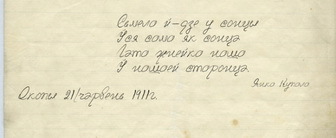 Сьмела й-дзе у сонцы
Уся сама як сонцэ
Гэта жнейка наша
У нашай старонцэ.
Янка Купала
Окопы 21/чэрвень 1911г.